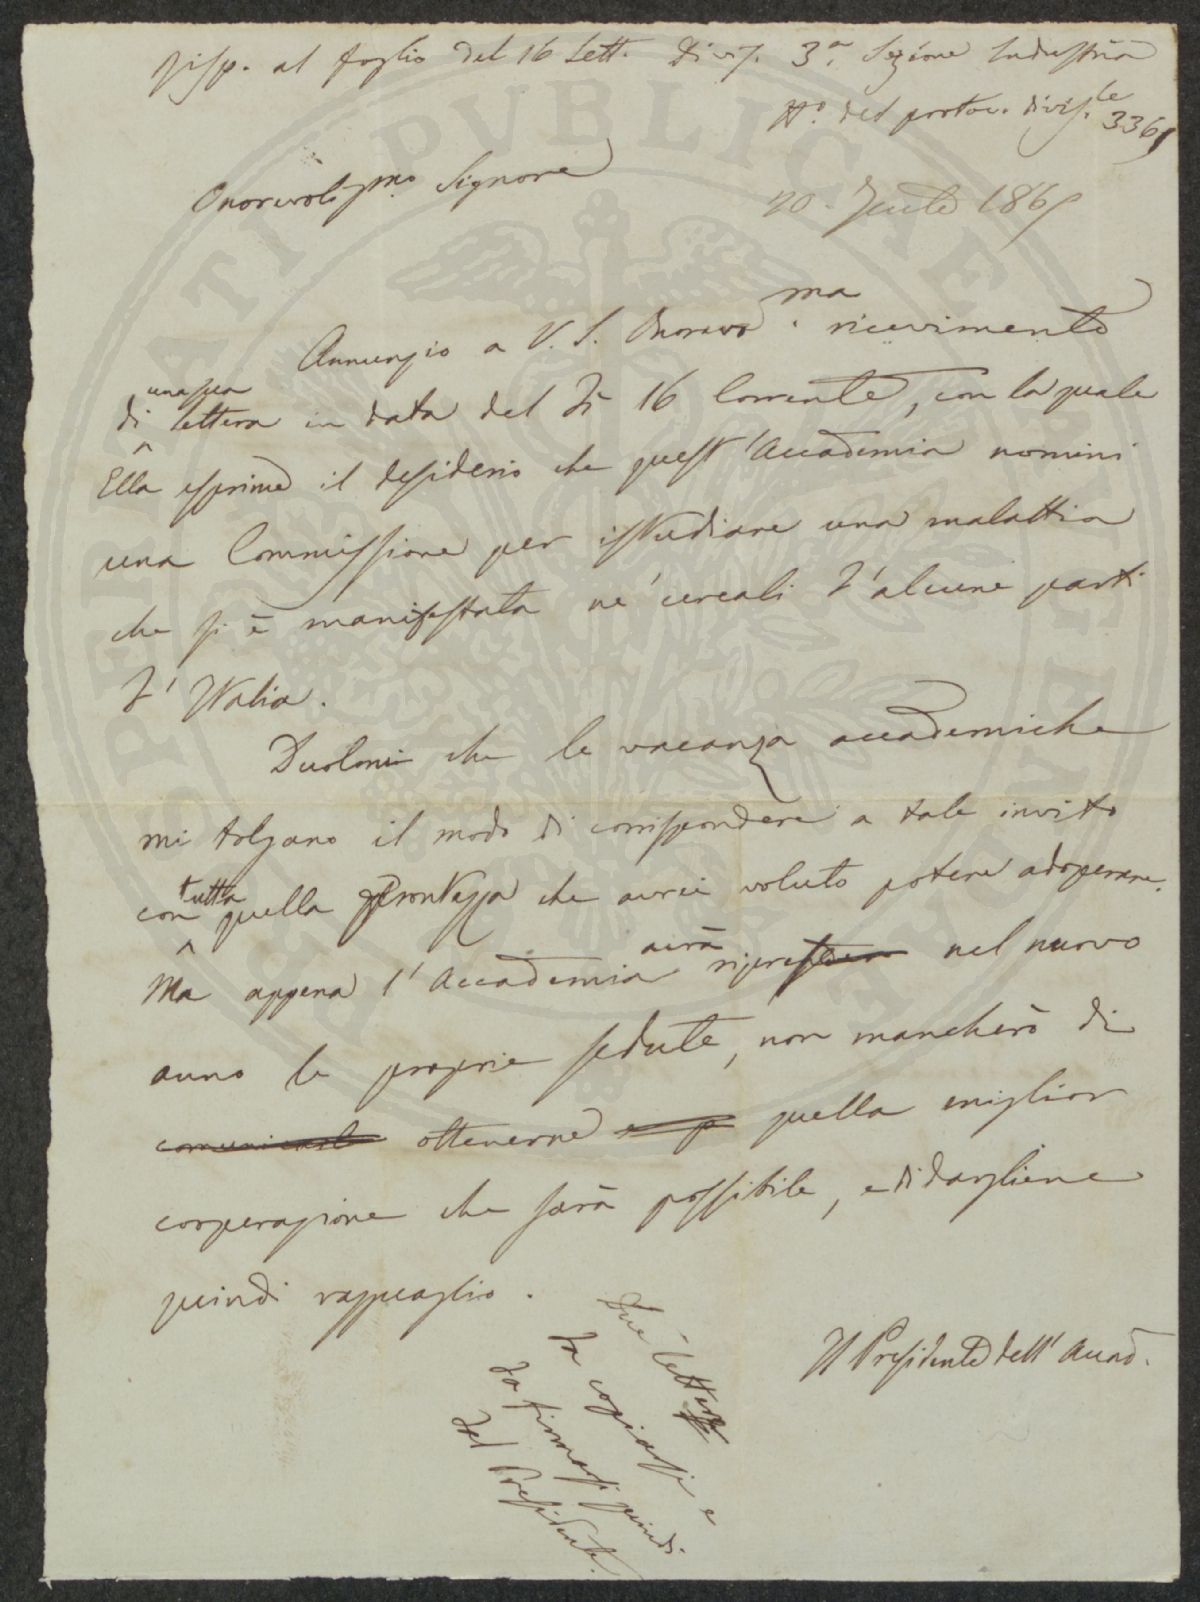 Risp. al foglio del 16 Sett. Divis. 3.ª Sezione Industria
N.º del protoc. divis.le 3361
Onorevolissmo Signore
20. 1865
Annunzio a V. S. Onorevo.ma ricevimento
di una sua lettera in data del dì 16 Corrente, con la quale
Ella esprime il desiderio che quest'Accademia nomini
una Commissione per istudiare una malattia
che si è manifestata ne' cereali d'alcune parti
d'Italia.
Duolmi che le vacanza accademiche
mi tolgano il modo di corrispondere a tale invito
con tutta quella prontezza che avrei voluto potere adoperare.
Ma appena l'Accademia avrà nel nuovo
anno le proprie sedute, non mancherò di
ottenerne quella miglior
cooperazione che sarà possibile, e di dargliene
quindi ragguaglio.
Il Presidente dell'Accad.
Due lettere
da copiarsi e
da firmarsi quindi
dal Presidente.
PROSPERITATI PVBLICAE AVGENDAE